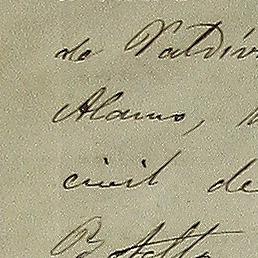 de Valdiv
Alamo,
civil de